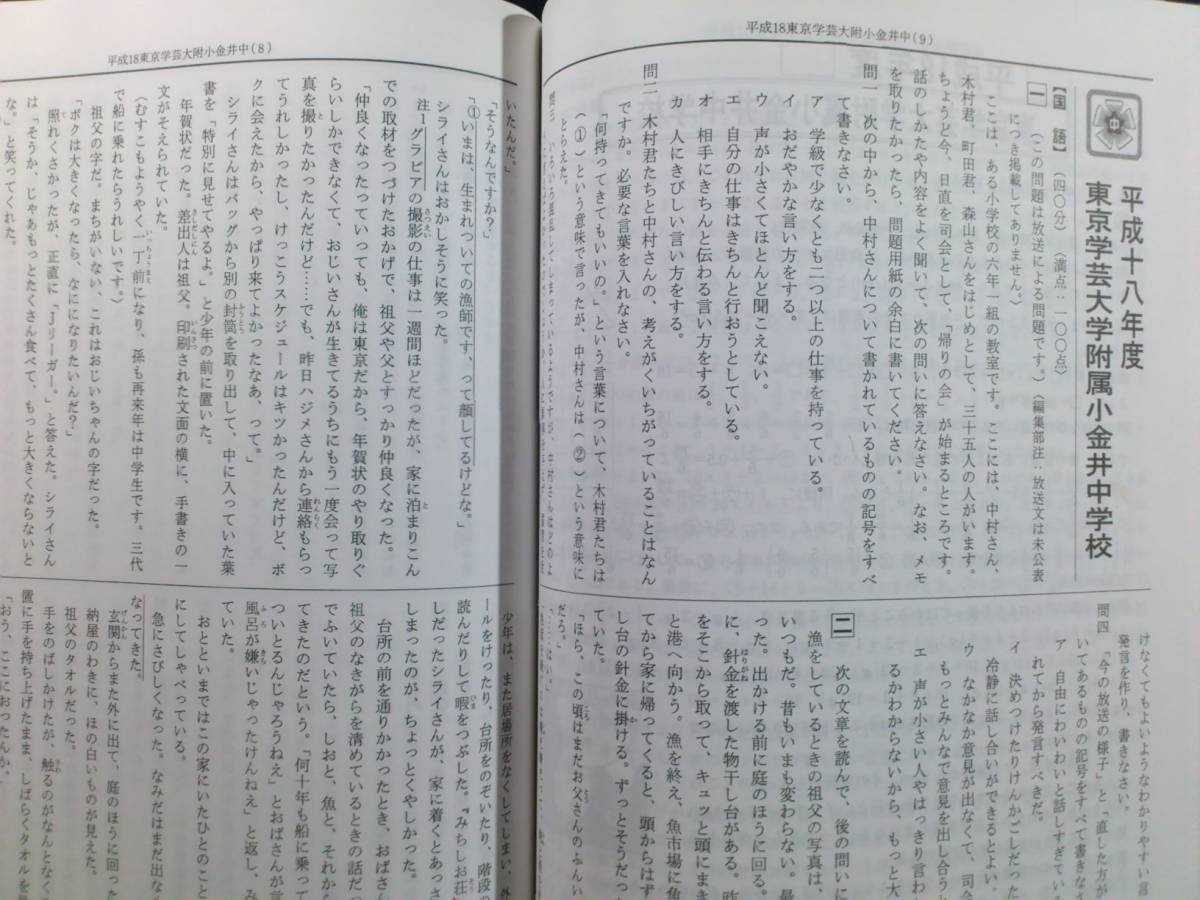 平成18東京学芸大附小金井中（9）
平成十八年度
東京学芸大学附属小金井中学校
【国　語】（四〇分）〈満点：一〇〇点〉
一　（この問題は放送による問題です。）〈編集部注：放送文は未公表
につき掲載してありません。〉
ここは、ある小学校の六年一組の教室です。ここには、中村さん、
木村君、町田君、森山さんをはじめとして、三十五人の人がいます。
ちょうど今、日直を司会として、「帰りの会」が始まるところです。
話のしかたや内容をよく聞いて、次の問いに答えなさい。なお、メモ
を取りたかったら、問題用紙の余白に書いてください。
問一　次の中から、中村さんについて書かれているものの記号をすべ
て書きなさい。
ア　学級で少なくとも二つ以上の仕事を持っている。
イ　おだやかな言い方をする。
ウ　声が小さくてほとんど聞こえない。
エ　自分の仕事はきちんと行おうとしている。
オ　相手にきちんと伝わる言い方をする。
カ　人にきびしい言い方をする。
問二　木村君たちと中村さんの、考えがくいちがっていることはなん
ですか。必要な言葉を入れなさい。
「何持ってきてもいいの。」という言葉について、木村君たちは
（①）という意味で言ったが、中村さんは（②）という意味に
とらえた。
けなくてもよいようなわかりやすい言
発言を作り、書きなさい。
問四　「今の放送の様子」と「直した方が
いてあるものの記号をすべて書きなさ
ア　自由にわいわいと話しすぎている
れてから発言すべきだ。
イ　決めつけたりけんかごしだった
冷静に話し合いができるとよい。
ウ　なかなか意見が出なくて、司会
もっとみんなで意見を出し合うと
エ　声が小さい人やはっきり言わ
るかわからないから、もっと大
二　次の文章を読んで、後の問いに
漁をしているときの祖父の写真は、
いつもだ。昔もいまも変わらない。最
った。出かける前に庭のほうに回る。
に、針金を渡した物干し台がある。昨
をそこから取って、キュッと頭にまき
と港へ向かう。漁を終え、魚市場に魚
てから家に帰ってくると、頭からはず
し台の針金に掛ける。ずっとそうだっ
ていた。
「ほら、この頃はまだお父さんのふんい
だろ。」
平成18東京学芸大附小金井中（8）
いたんだ。」
「そうなんですか？」
「①いまは、生まれついての漁師です、って顔してるけどな。」
シライさんはおかしそうに笑った。
注―グラビアの撮影の仕事は一週間ほどだったが、家に泊まりこん
での取材をつづけたおかげで、祖父や父とすっかり仲良くなった。
「仲良くなったっていっても、俺は東京だから、年賀状のやり取りぐ
らいしかできなくて、おじいさんが生きてるうちにもう一度会って写
真を撮りたかったんだけど……でも、昨日ハジメさんから連絡もらっ
てうれしかったし、けっこうスケジュールはキツかったんだけど、ボ
クに会えたから、やっぱり来てよかったなあ、って。」
シライさんはバッグから別の封筒を取り出して、中に入っていた葉
書を「特別に見せてやるよ。」と少年の前に置いた。
年賀状だった。差出人は祖父。印刷された文面の横に、手書きの一
文がそえられていた。
〈むすこもようやく一丁前になり、孫も再来年は中学生です。三代
で船に乗れたらうれしいです。〉
祖父の字だ。まちがいない、これはおじいちゃんの字だった。
「ボクは大きくなったら、なにになりたいんだ？」
照れくさかったが、正直に「Ｊリーガー。」と答えた。シライさん
は「そうか、じゃあもっとたくさん食べて、もっと大きくならないと
な。」と笑ってくれた。
少年は、また居場所をなくしてしまい、外
ールをけったり、台所をのぞいたり、階段
読んだりして暇をつぶした。『みちしお荘
しだったシライさんが、家に着くとあっさ
しまったのが、ちょっとくやしかった。
台所の前を通りかかったとき、おばさん
祖父のなきがらを清めているときの話だっ
でふいていたら、しおと、魚と、それから
てきたのだという。「何十年も船に乗って
ついとるんじゃろうねえ」とおばさんが言
風呂が嫌いじゃったけんねえ」と返し、み
ていた。
おとといまではこの家にいたひとのこと
にしてしゃべっている。
急にさびしくなった。なみだはまだ出な
なってきた。
玄関からまた外に出て、庭のほうに回った
納屋のわきに、ほの白いものが見えた。
祖父のタオルだった。
手をのばしかけたが、触るのがなんとなく
置に手を持ち上げたまま、しばらくタオルを見
「おう、ここにおったんか。」